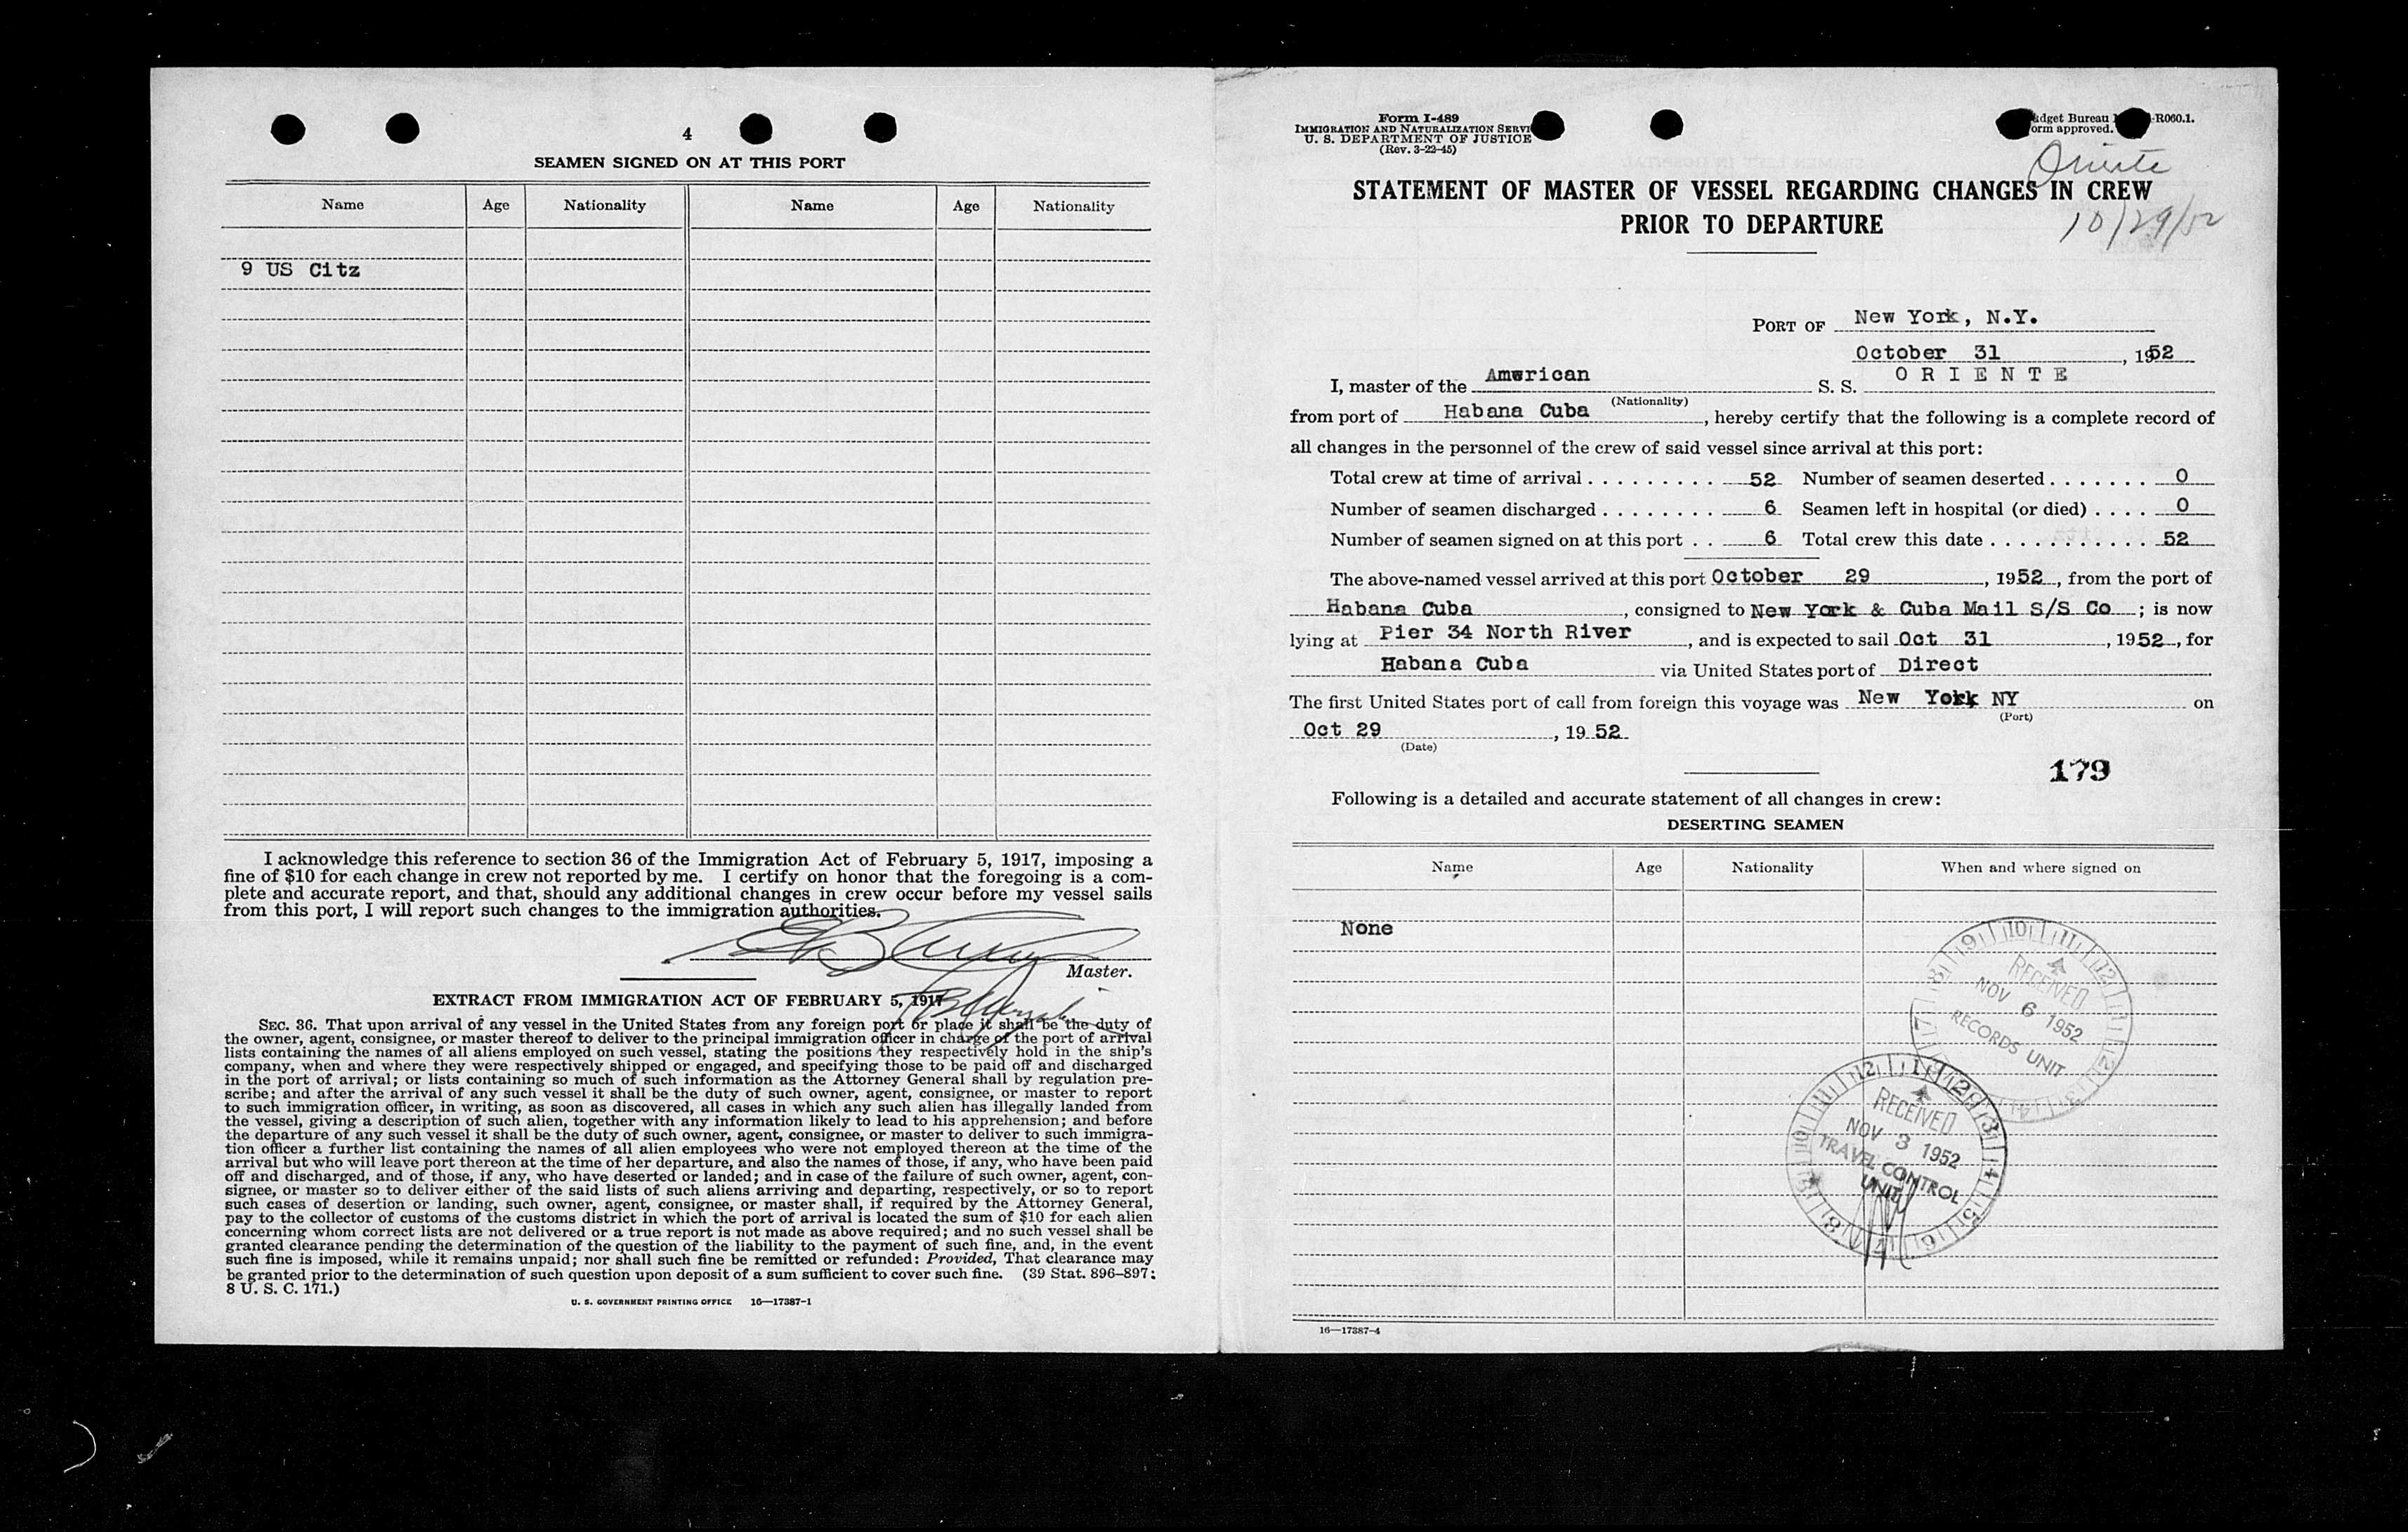 4
SEAMEN SIGNED ON AT THIS PORT
Name Age Nationality Name Age Nationality
9 US Citz
I acknowledge this reference to section 36 of the Immigration Act of February 5, 1917, imposing a
fine of $10 for each change in crew not reported by me. I certify on honor that the foregoing is a com-
plete and accurate report, and that, should any additional changes in crew occur before my vessel sails
from this port, I will report such changes to the immigration authorities.
Master.
EXTRACT FROM IMMIGRATION ACT OF FEBRUARY 5, 1917
SEC. 36. That upon arrival of any vessel in the United States from any foreign port or place it shall be the duty of
the owner, agent, consignee, or master thereof to deliver to the principal immigration officer in charge of the port of arrival
lists containing the names of all aliens employed on such vessel, stating the positions they respectively hold in the ship's
company, when and where they were respectively shipped or engaged, and specifying those to be paid off and discharged
in the port of arrival; or lists containing so much of such information as the Attorney General shall by regulation pre-
scribe; and after the arrival of any such vessel it shall be the duty of such owner, agent, consignee, or master to report
to such immigration officer, in writing, as soon as discovered, all cases in which any such alien has illegally landed from
the vessel, giving a description of such alien, together with any information likely to lead to his apprehension; and before
the departure of any such vessel it shall be the duty of such owner, agent, consignee, or master to deliver to such immigra-
tion officer a further list containing the names of all alien employees who were not employed thereon at the time of the
arrival but who will leave port thereon at the time of her departure, and also the names of those, if any, who have been paid
off and discharged, and of those, if any, who have deserted or landed; and in case of the failure of such owner, agent, con-
signee, or master so to deliver either of the said lists of such aliens arriving and departing, respectively, or so to report
such cases of desertion or landing, such owner, agent, consignee, or master shall, if required by the Attorney General,
pay to the collector of customs of the customs district in which the port of arrival is located the sum of $10 for each alien
concerning whom correct lists are not delivered or a true report is not made as above required; and no such vessel shall be
granted clearance pending the determination of the question of the liability to the payment of such fine, and, in the event
such fine is imposed, while it remains unpaid; nor shall such fine be remitted or refunded: Provided, That clearance may
be granted prior to the determination of such question upon deposit of a sum sufficient to cover such fine. (39 Stat. 896–897;
8 U. S. C. 171.)
U. S. GOVERNMENT PRINTING OFFICE 16—17387-1
Form I-489
IMMIGRATION AND NATURALIZATION SERVI
U. S. DEPARTMENT OF JUSTICE
(Rev. 3-22-45)
dget Bureau R060.1.
orm approved.
Oriente
STATEMENT OF MASTER OF VESSEL REGARDING CHANGES IN CREW
PRIOR TO DEPARTURE
10/29/52
PORT OF New York, N.Y.
October 31, 1952
I, master of the Amwrican S. S. ORIENTE
(Nationality)
from port of Habana Cuba, hereby certify that the following is a complete record of
all changes in the personnel of the crew of said vessel since arrival at this port:
Total crew at time of arrival . . . . . . . . . 52 Number of seamen deserted . . . . . . . 0
Number of seamen discharged . . . . . . . . 6 Seamen left in hospital (or died) . . . . 0
Number of seamen signed on at this port . . 6 Total crew this date . . . . . . . . . . . 52
The above-named vessel arrived at this port October 29, 1952, from the port of
Habana Cuba, consigned to New York & Cuba Mail S/S Co; is now
lying at Pier 34 North River, and is expected to sail Oct 31, 1952, for
Habana Cuba via United States port of Direct
The first United States port of call from foreign this voyage was New York NY on
(Port)
Oct 29, 1952
(Date)
179
Following is a detailed and accurate statement of all changes in crew:
DESERTING SEAMEN
Name Age Nationality When and where signed on
None
RECEIVED
NOV 6 1952
RECORDS UNIT
RECEIVED
NOV 3 1952
TRAVEL CONTROL
UNIT
16—17387-4